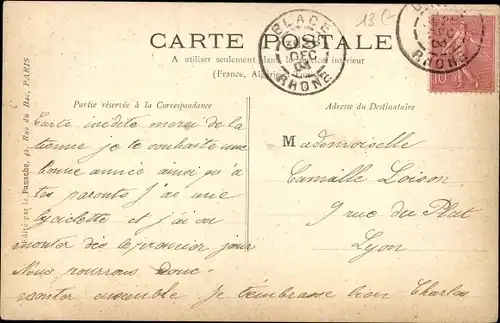 13 €
BLACE
DEC
RHONE
RHONE
10
CARTE POSTALE
A utiliser seulement dans le service intérieur
(France, Algérie, Tunisie)
Edité par le Panache, 41, Rue du Bac, PARIS
Partie réservée à la Correspondance
Carte inédite merci de la
tienne je te souhaite une
bonne année ainsi qu'a
tes parents j'ai une
byciclette et j'ai su
monter dés le premier jour
Nous pourrons donc
monter ensemble. je t'embrasse bien Charles
Adresse du Destinataire
Mademoiselle
Camille Loison
9 rue du Plat
Lyon